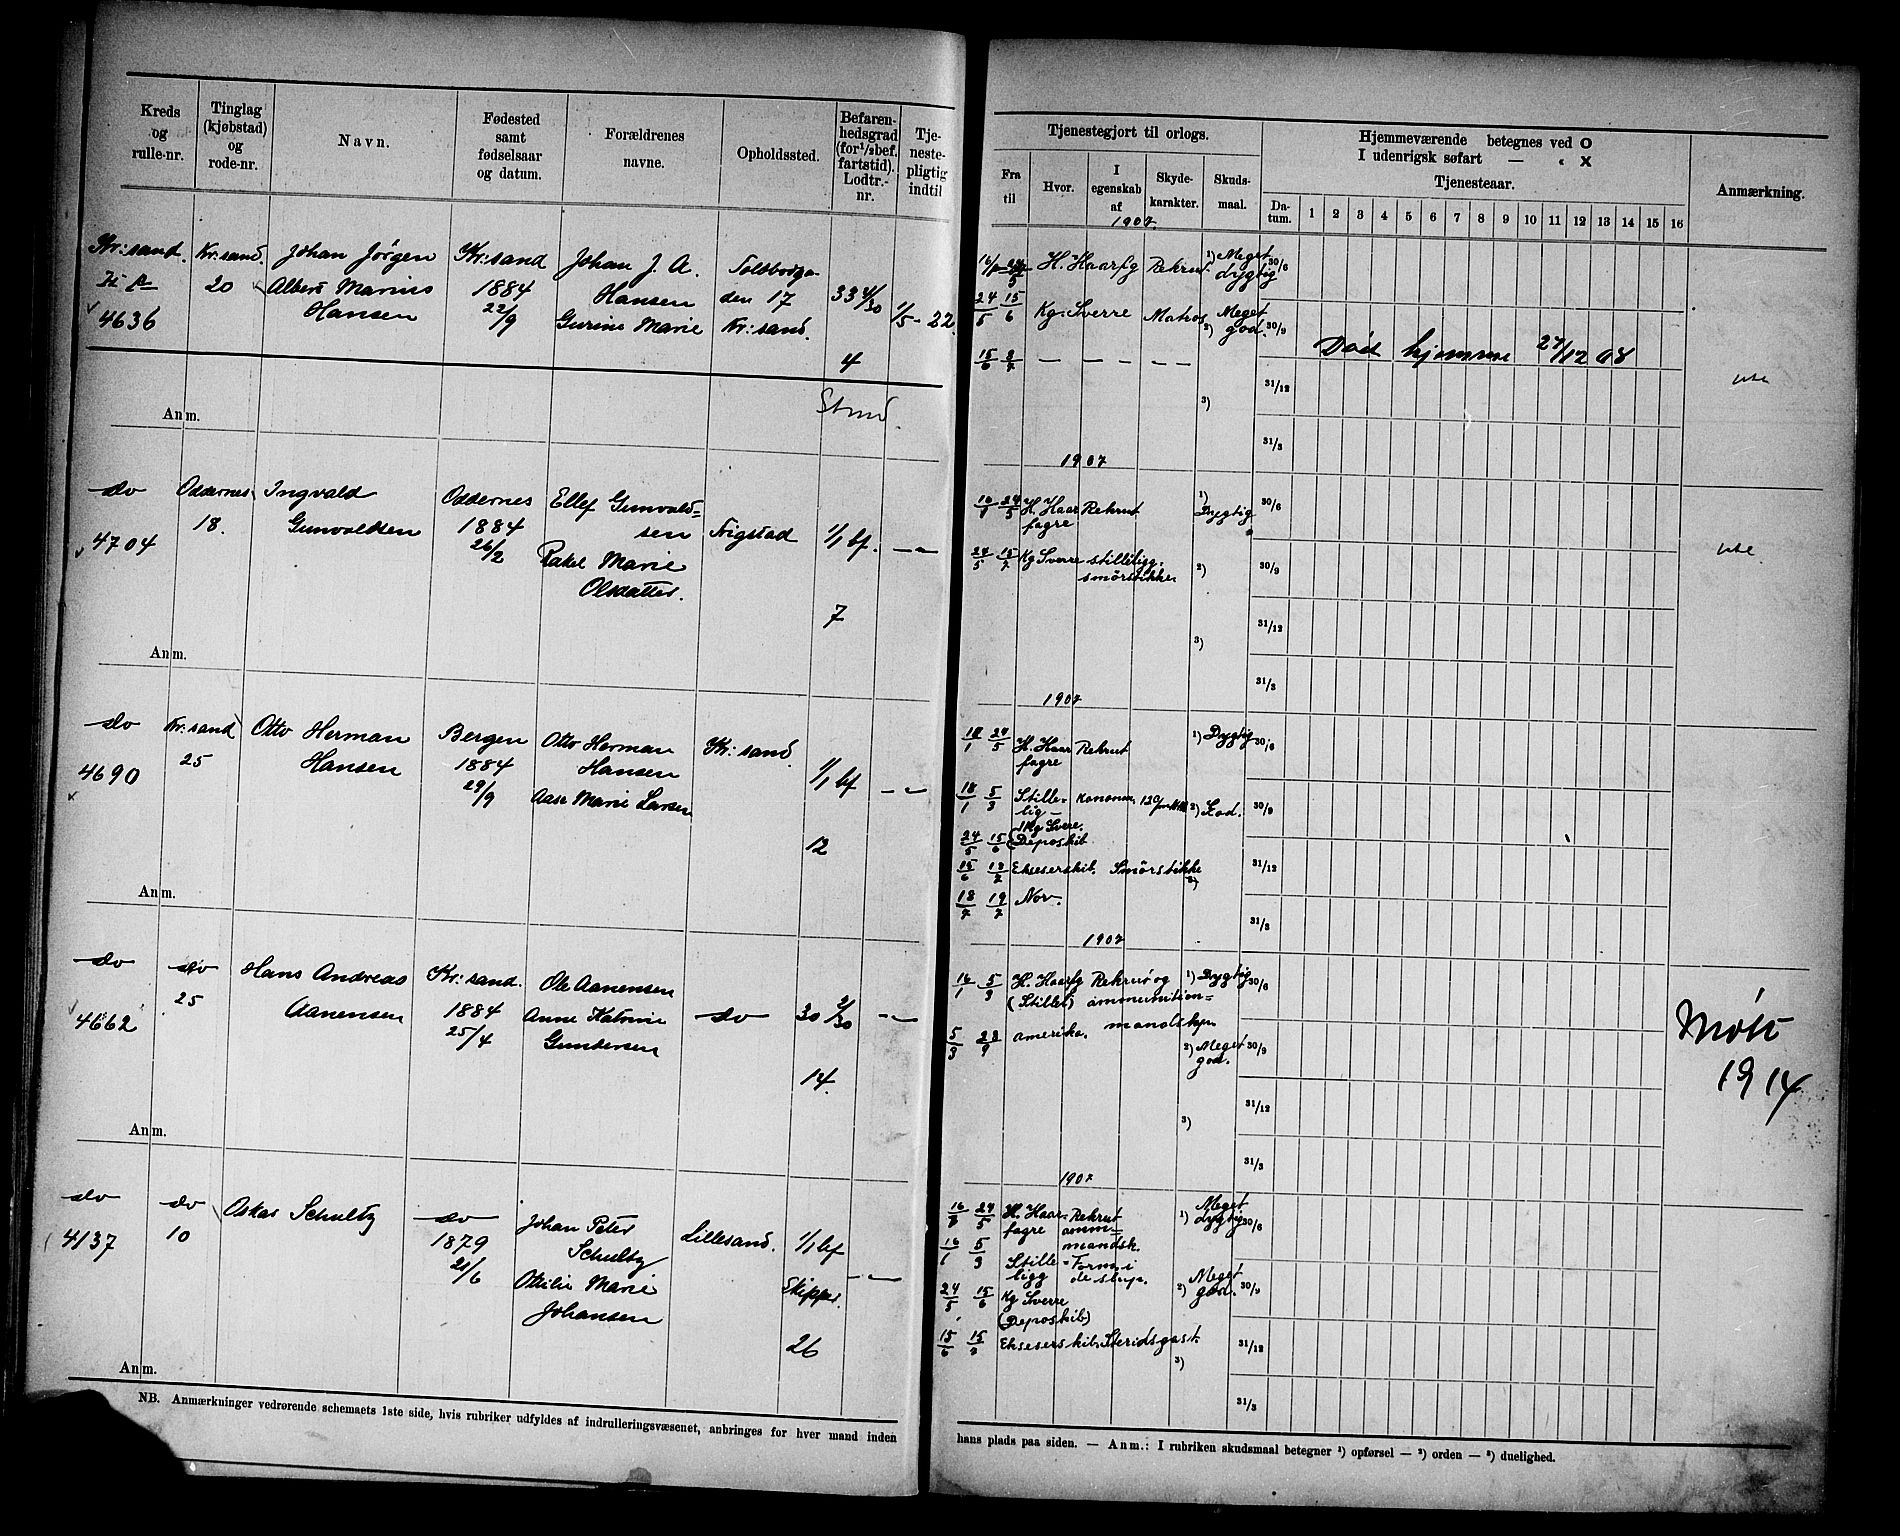 Kreds og rulle-nr.
Tinglag (kjøbstad) og rode-nr.
Navn.
Fødested samt fødselsaar og datum.
Forældrenes navne.
Opholdssted.
Befarenhedsgrad (for 1/2 bef. fartstid). Lodtr.-nr.
Tjenestepligtig indtil
Kr:sand. Kr:sand. Johan Jörgen Kr:sand Johan J. A.
20 Albert Marius 1884 Hansen den 17 33 4/30 1/5-22.
4636 Hansen 22/9 Gurine Marie Kr:sand.
4
Anm.
do Oddernes Ingvald Oddernes Ellef Gunvald=
18. Gunvaldsen 1884 sen 1/1 bf. —"—
4704 26/2 Rakel Marie
Olsdatter.
7
Anm.
do Kr:sand Otto Herman Bergen Otto Herman Kr:sand.
25 Hansen 1884 Hansen 1/1 bf —"—
4690 29/9 Aase Marie Larsen
12
Anm.
do do Hans Andreas Kr:sand. Ole Aanensen
25 Aanensen 1884 Anne Katrine do 30 2/30 —"—
4662 25/4 Gundersen
14.
Anm.
do do Oskar Schultz do Johan Peter
4137 10 1879 Schultz Lillesand. 1/1 bf
21/6 Ottilie Marie Skipper. —"—
Johansen
26
Anm.
NB. Anmærkninger vedrørende schemaets 1ste side, hvis rubriker udfyldes af indrulleringsvæsenet, anbringes for hver mand inden
Tjenestegjort til orlogs.
Fra til
Hvor.
I egenskab af
Skydekarakter.
Skudsmaal.
Hjemmeværende betegnes ved O
I udenrigsk søfart — " X
Tjenesteaar.
Datum. 1 2 3 4 5 6 7 8 9 10 11 12 13 14 15 16
Anmærkning.
1907
H. Haarfg Rekrut. 1) Meget dygtig 30/6
24/5 15/6 Kg. Sverre Matros 2) Meget god. 30/9
Död hjemme 27/12 08
15/6 — — — — —
3) 31/12
31/3
1907
16/1 24/5 H. Haarfagre Rekrut 1) Dygtig 30/6
24/5 15/7 Kg Sverre 2) 30/9
3) 31/12
31/3
1907
18/1 24/5 H. Haarfagre Rekrut 1) Dygtig 30/6
18/1 5/3 Stillelig— 2) God. 30/9
24/5 15/6 (Kg Sverre. Deposkib
Ekserserskib. Smörstikke 3) 31/12
Nov.
31/3
1907
16/1 5/3 H. Haarfg Rekrut og 1) Dygtig 30/6
(Stillel) ammunition=
5/3 amerika. 2) Meget god. 30/9
3) 31/12
31/3
Möti
1914
1907
24/5 H. Haarfagre Rekrut amm= 1) Meget dygtig 30/6
16/1 5/3 Stilleligg mandsk.
2) Meget god. 30/9
24/5 15/6 Kg Sverre
(Deposkib)
Ekserserskib. 3) 31/12
31/3
hans plads paa siden. — Anm.: I rubriken skudsmaal betegner 1) opførsel — 2) orden — 3) duelighed.